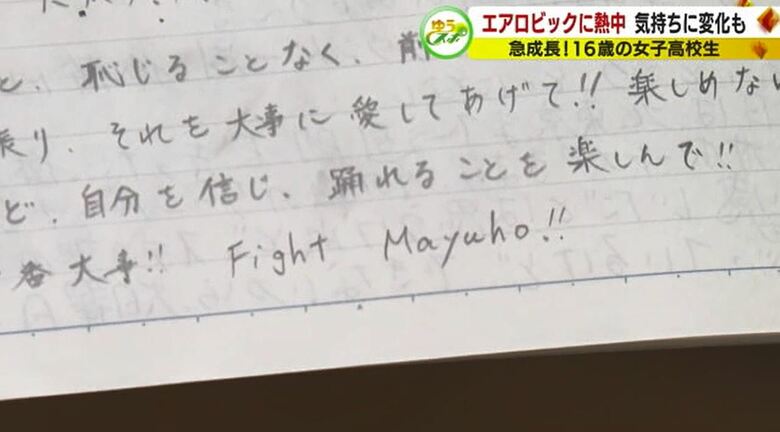 ゆう
スポ
エアロビックに熱中 気持ちに変化も
急成長！16歳の女子高校生
と、恥じることなく、前
張り、それを大事に愛してあげて!! 楽しめない
ど、自分を信じ、踊れることを楽しんで!!
番大事!! Fight Mayuho!!